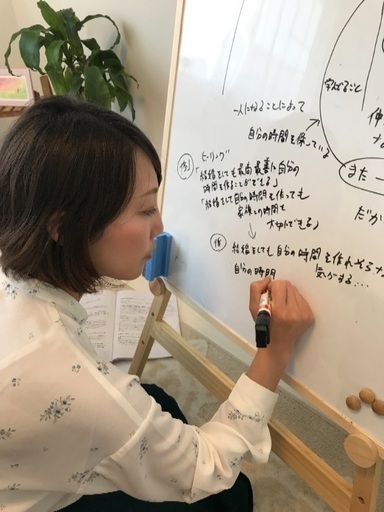 一人になることによって
自分の時間を保っている
例1
ヒーリング
「結婚しても最高最善に自分の
時間を作ることができる」
「結婚して自分の時間を作っても
家族との時間を
大切にできる」
↓
結婚しても自分の時間を作れそうな
気がする…
自分の時間
学んでること
また
だか